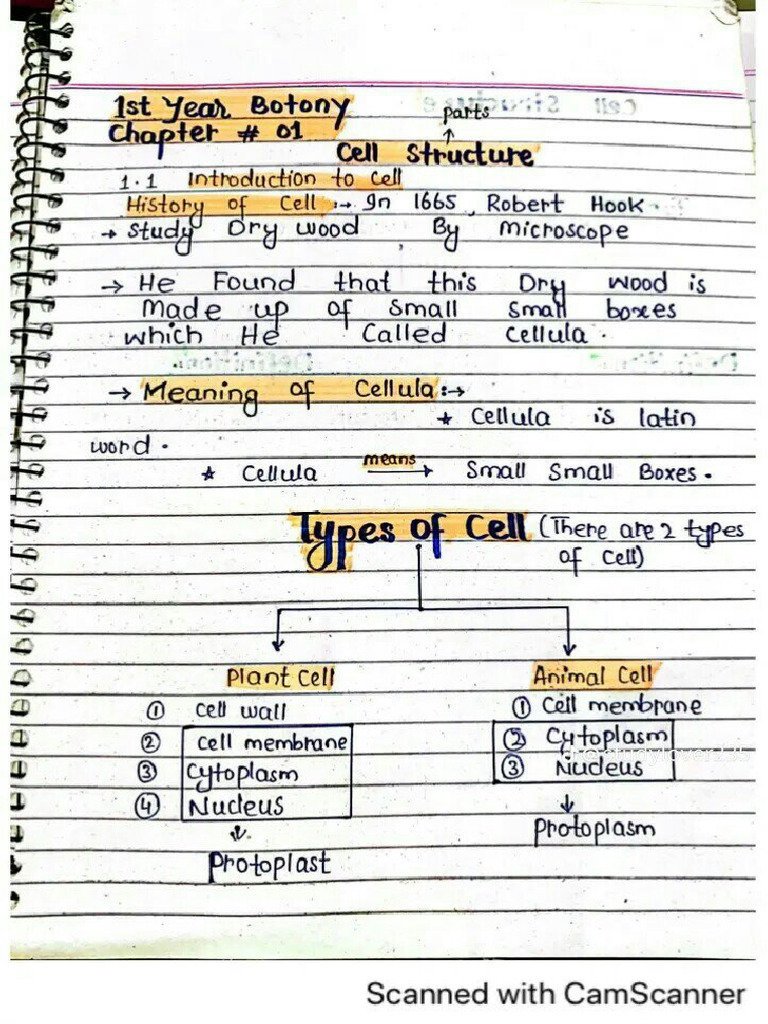 1st Year Botony
Chapter # 01
parts
↑
Cell Structure
1.1 Introduction to Cell
History of Cell :→ In 1665, Robert Hook.
→ Study Dry wood By microscope
→ He Found that this Dry wood is
made up of small small boxes
which He Called cellula.
→ Meaning of Cellula :→
★ Cellula is latin
word.
★ Cellula means → Small Small Boxes.
Types of Cell (There are 2 types
of Cell)
Plant Cell
① Cell wall
② Cell membrane
③ Cytoplasm
④ Nucleus
↓
Protoplast
Animal Cell
① Cell membrane
② Cytoplasm
③ Nucleus
↓
Protoplasm
Scanned with CamScanner